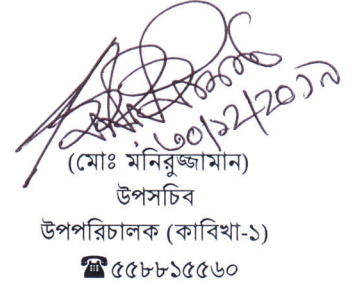 ৩০/১২/২০১৯
(মোঃ মনিরুজ্জামান)
উপসচিব
উপপরিচালক (কাবিখা-১)
☎ ৫৫৮৮১৫৫৬০